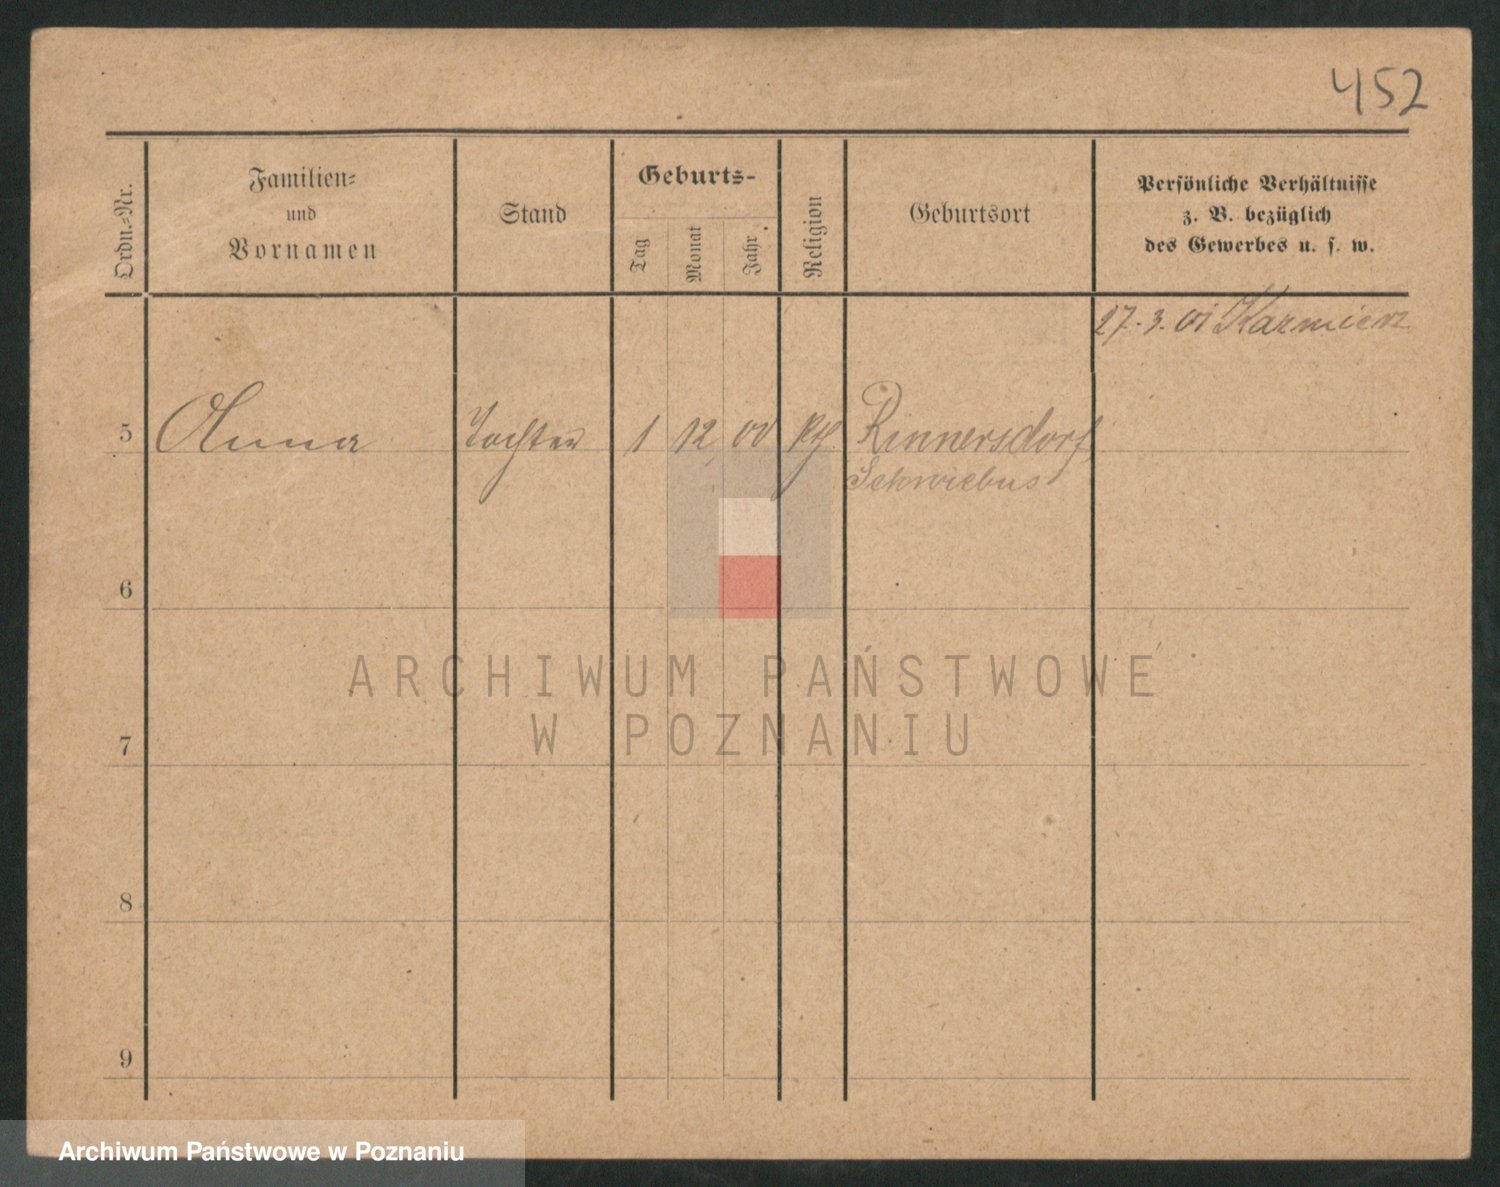 452
Ordn.-Nr.
Familien-
und
Vornamen
Stand
Geburts-
Tag
Monat
Jahr
Religion
Geburtsort
Persönliche Verhältnisse
z. B. bezüglich
des Gewerbes u. s. w.
27. 3. 01 Kazmierz
5 Anna Tochter 1 12 00 kth Rinnersdorf,
Schwiebus
6
ARCHIWUM PAŃSTWOWE
W POZNANIU
7
8
9
Archiwum Państwowe w Poznaniu